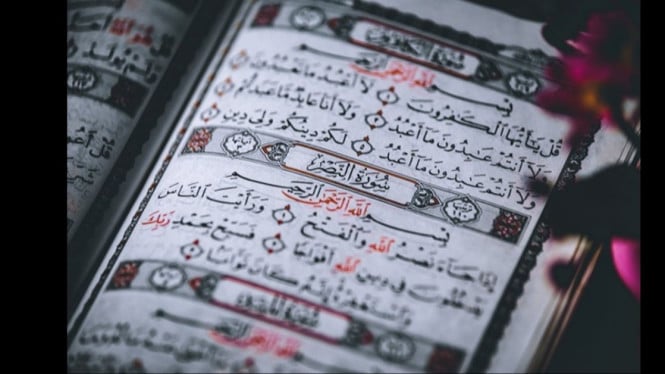 سُورَةُ الْكَافِرُونَ
بِسْمِ اللَّهِ الرَّحْمَٰنِ الرَّحِيمِ
قُلْ يَٰٓأَيُّهَا ٱلْكَٰفِرُونَ ۝١ لَآ أَعْبُدُ مَا تَعْبُدُونَ ۝٢
وَلَآ أَنتُمْ عَٰبِدُونَ مَآ أَعْبُدُ ۝٣ وَلَآ أَنَا۠ عَابِدٌ مَّا عَبَدتُّمْ ۝٤
وَلَآ أَنتُمْ عَٰبِدُونَ مَآ أَعْبُدُ ۝٥ لَكُمْ دِينُكُمْ وَلِىَ دِينِ ۝٦
سُورَةُ النَّصْرِ
بِسْمِ اللَّهِ الرَّحْمَٰنِ الرَّحِيمِ
إِذَا جَآءَ نَصْرُ ٱللَّهِ وَٱلْفَتْحُ ۝١ وَرَأَيْتَ ٱلنَّاسَ
يَدْخُلُونَ فِى دِينِ ٱللَّهِ أَفْوَاجًا ۝٢ فَسَبِّحْ بِحَمْدِ رَبِّكَ
وَٱسْتَغْفِرْهُ إِنَّهُۥ كَانَ تَوَّابًۢا ۝٣